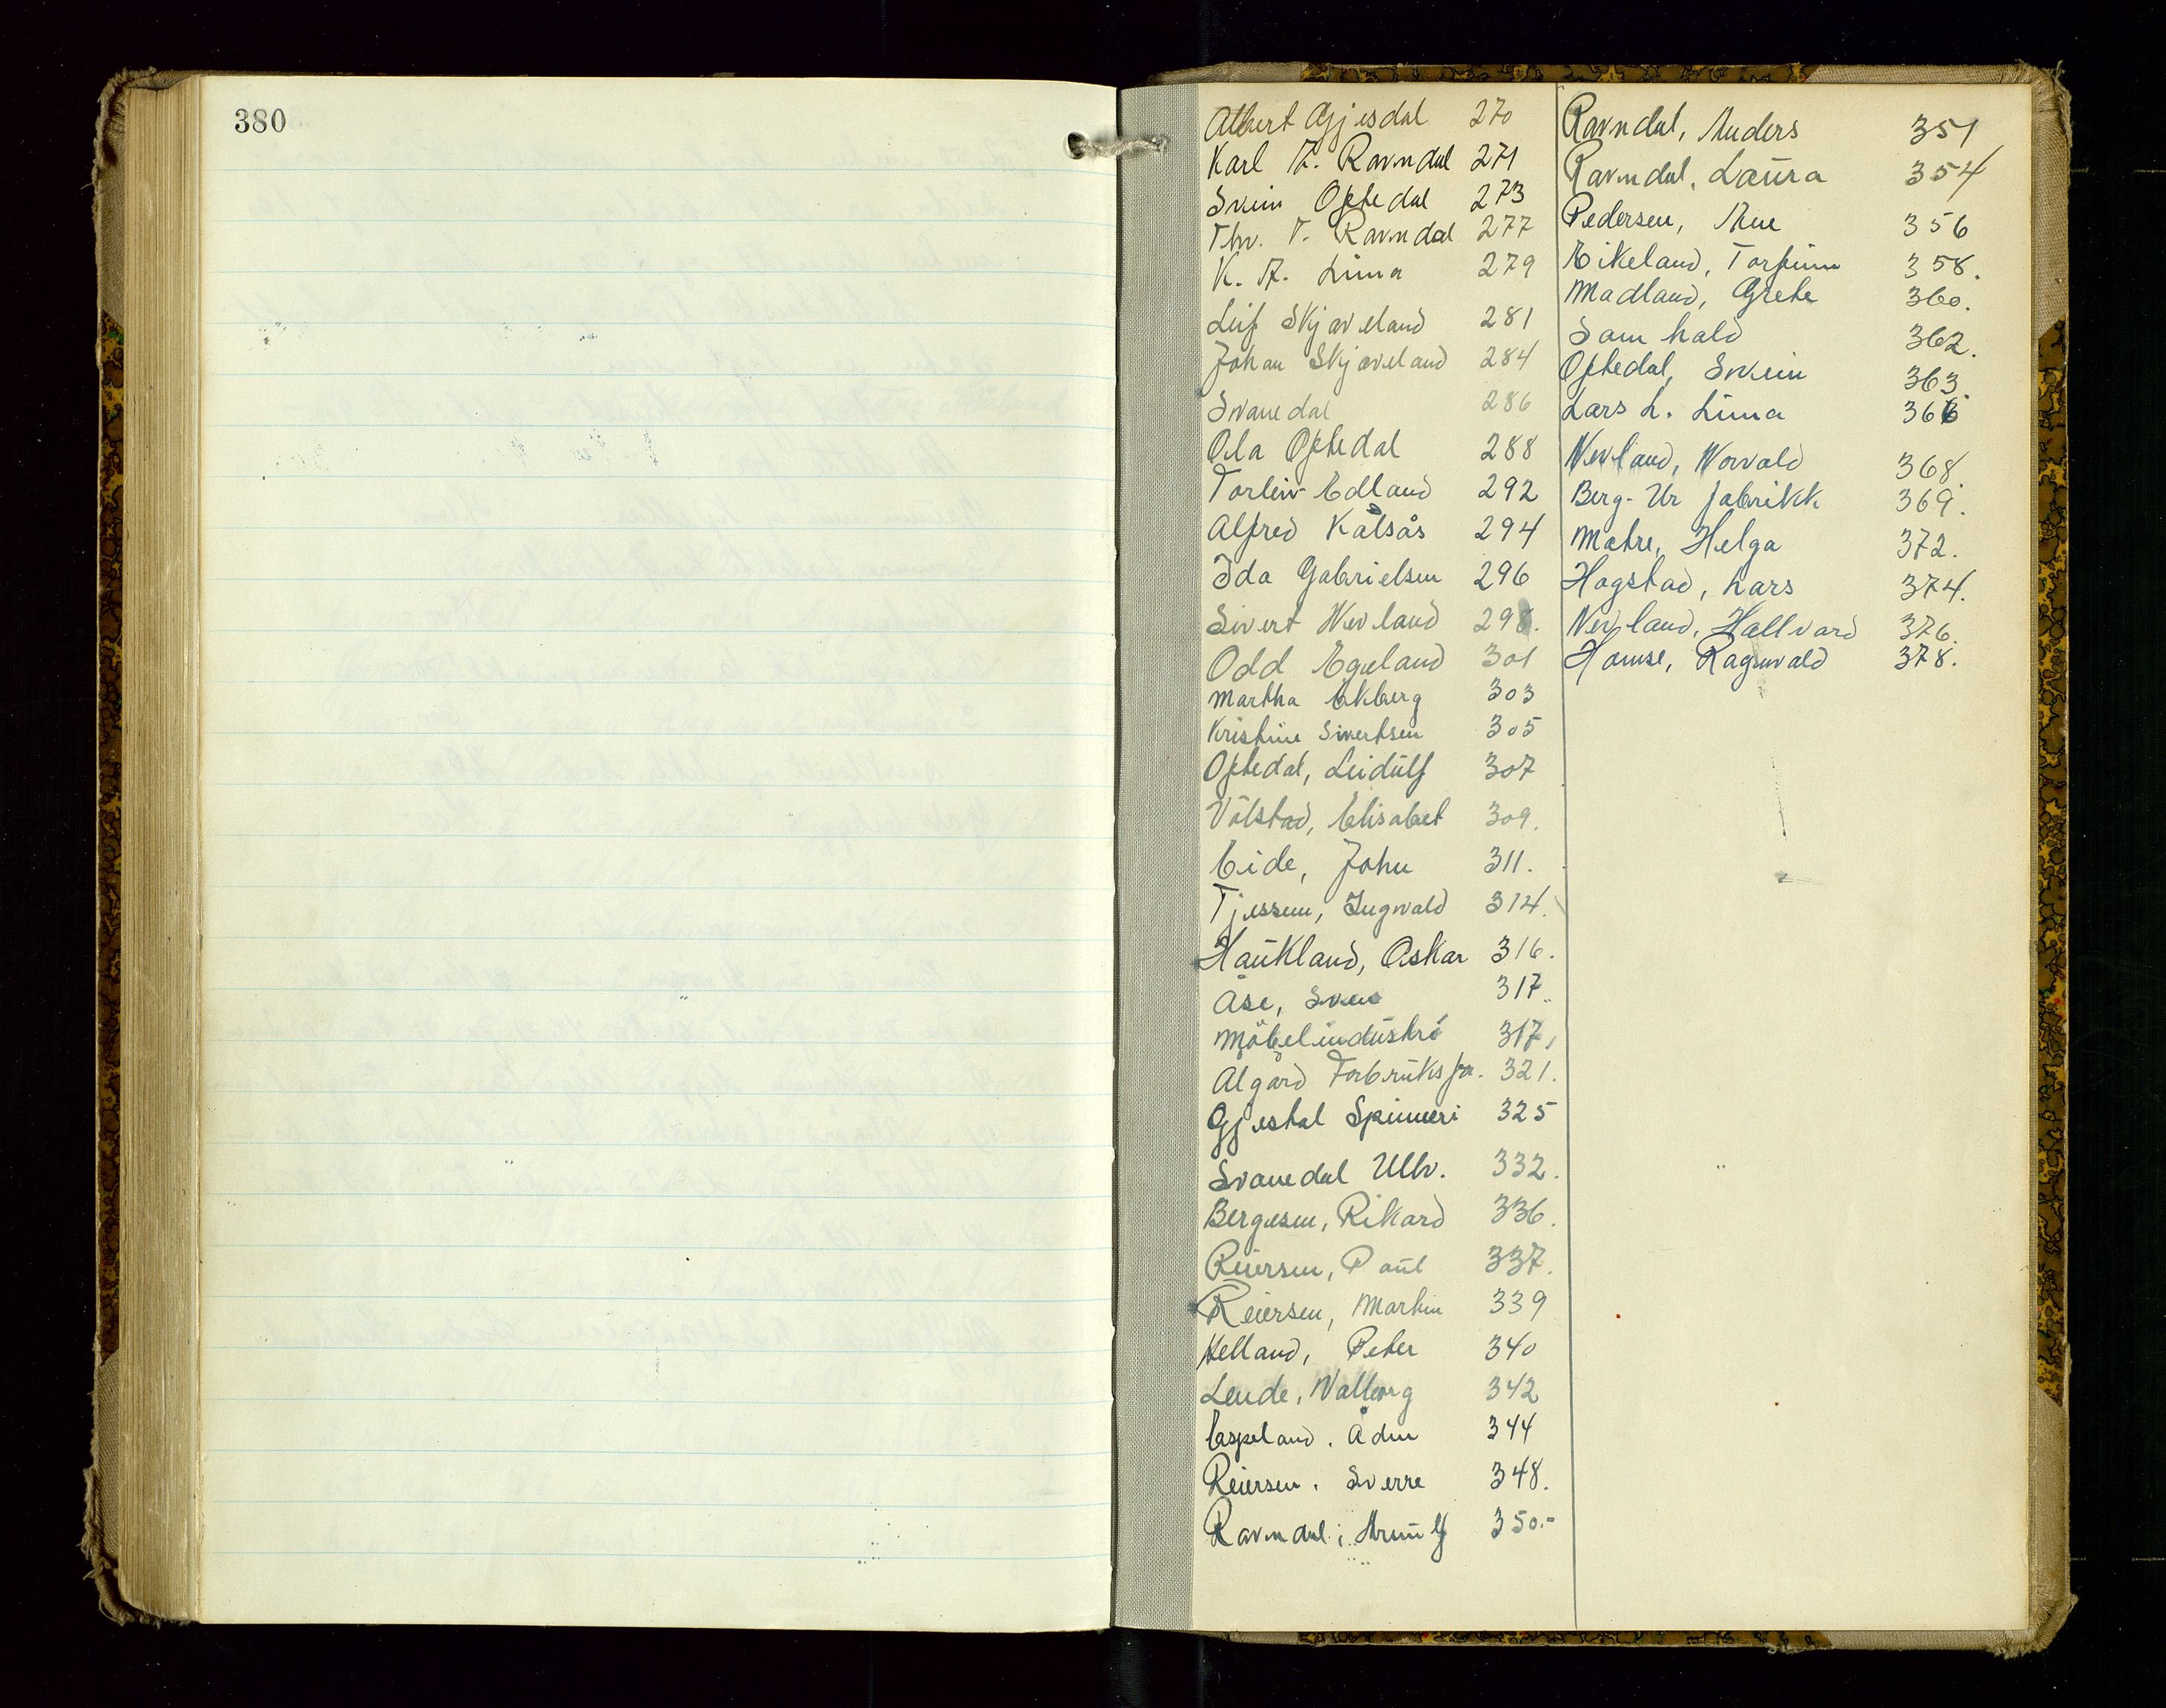 380
Albert Gjesdal 270
Karl A. Ravndal 271
Svein Oftedal 273
Thv. T. Ravndal 277
K. A. Lima 279
Leif Skjæveland 281
Johan Skjæveland 284
Svanedal 286
Ola Oftedal 288
Torleiv Edland 292
Alfred Kalsås 294
Ida Gabrielsen 296
Sivert Nevland 298.
Odd Egeland 301
Martha Ekberg 303
Kristine Sivertsen 305
Oftedal, Leidulf 307
Vålstad, Elisabet 309.
Eide, John 311.
Tjessem, Ingvald 314.
Haukland, Oskar 316.
Åse, Sven 317.
Møbelindustri 317,
Ålgård Forbruksfor. 321.
Gjestal Spinneri 325
Svanedal Ullv. 332.
Bergesen, Rikard 336.
Reiersen, Paul 337.
Reiersen, Martin 339
Helland, Peter 340
Lende, Valborg 342
Espeland. Ådne 344
Reiersen. Sverre 348.
Ravndal; Arnulf 350.-
Ravndal, Anders 351
Ravndal, Laura 354
Pedersen, Ane 356
Eikeland, Torfinn 358.
Madland, Grete 360.
Samhald 362.
Oftedal, Svein 363.
Lars L. Lima 366
Nevland, Norvald 368.
Berg-Ur fabrikk 369.
Matre, Helga 372.
Hogstad, Lars 374.
Nevland, Hallvard 376.
Homse, Ragnvald 378.